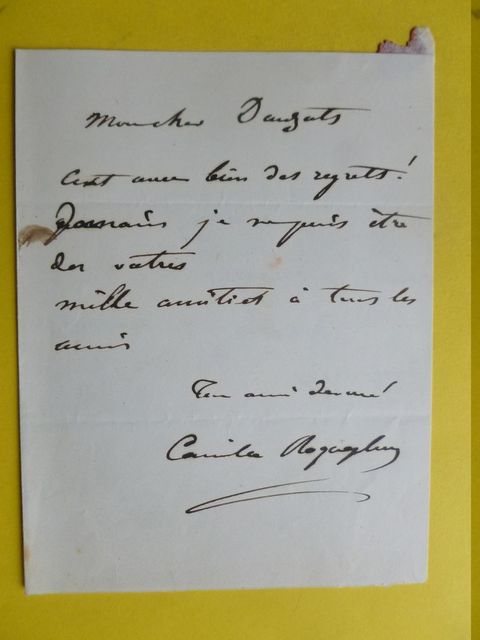 Mon cher Dauzats
C'est avec bien des regrets!
Jamais je ne puis être
des vôtres
mille amitiés à tous les
amis
Ton ami dévoué
Camille Roqueplan